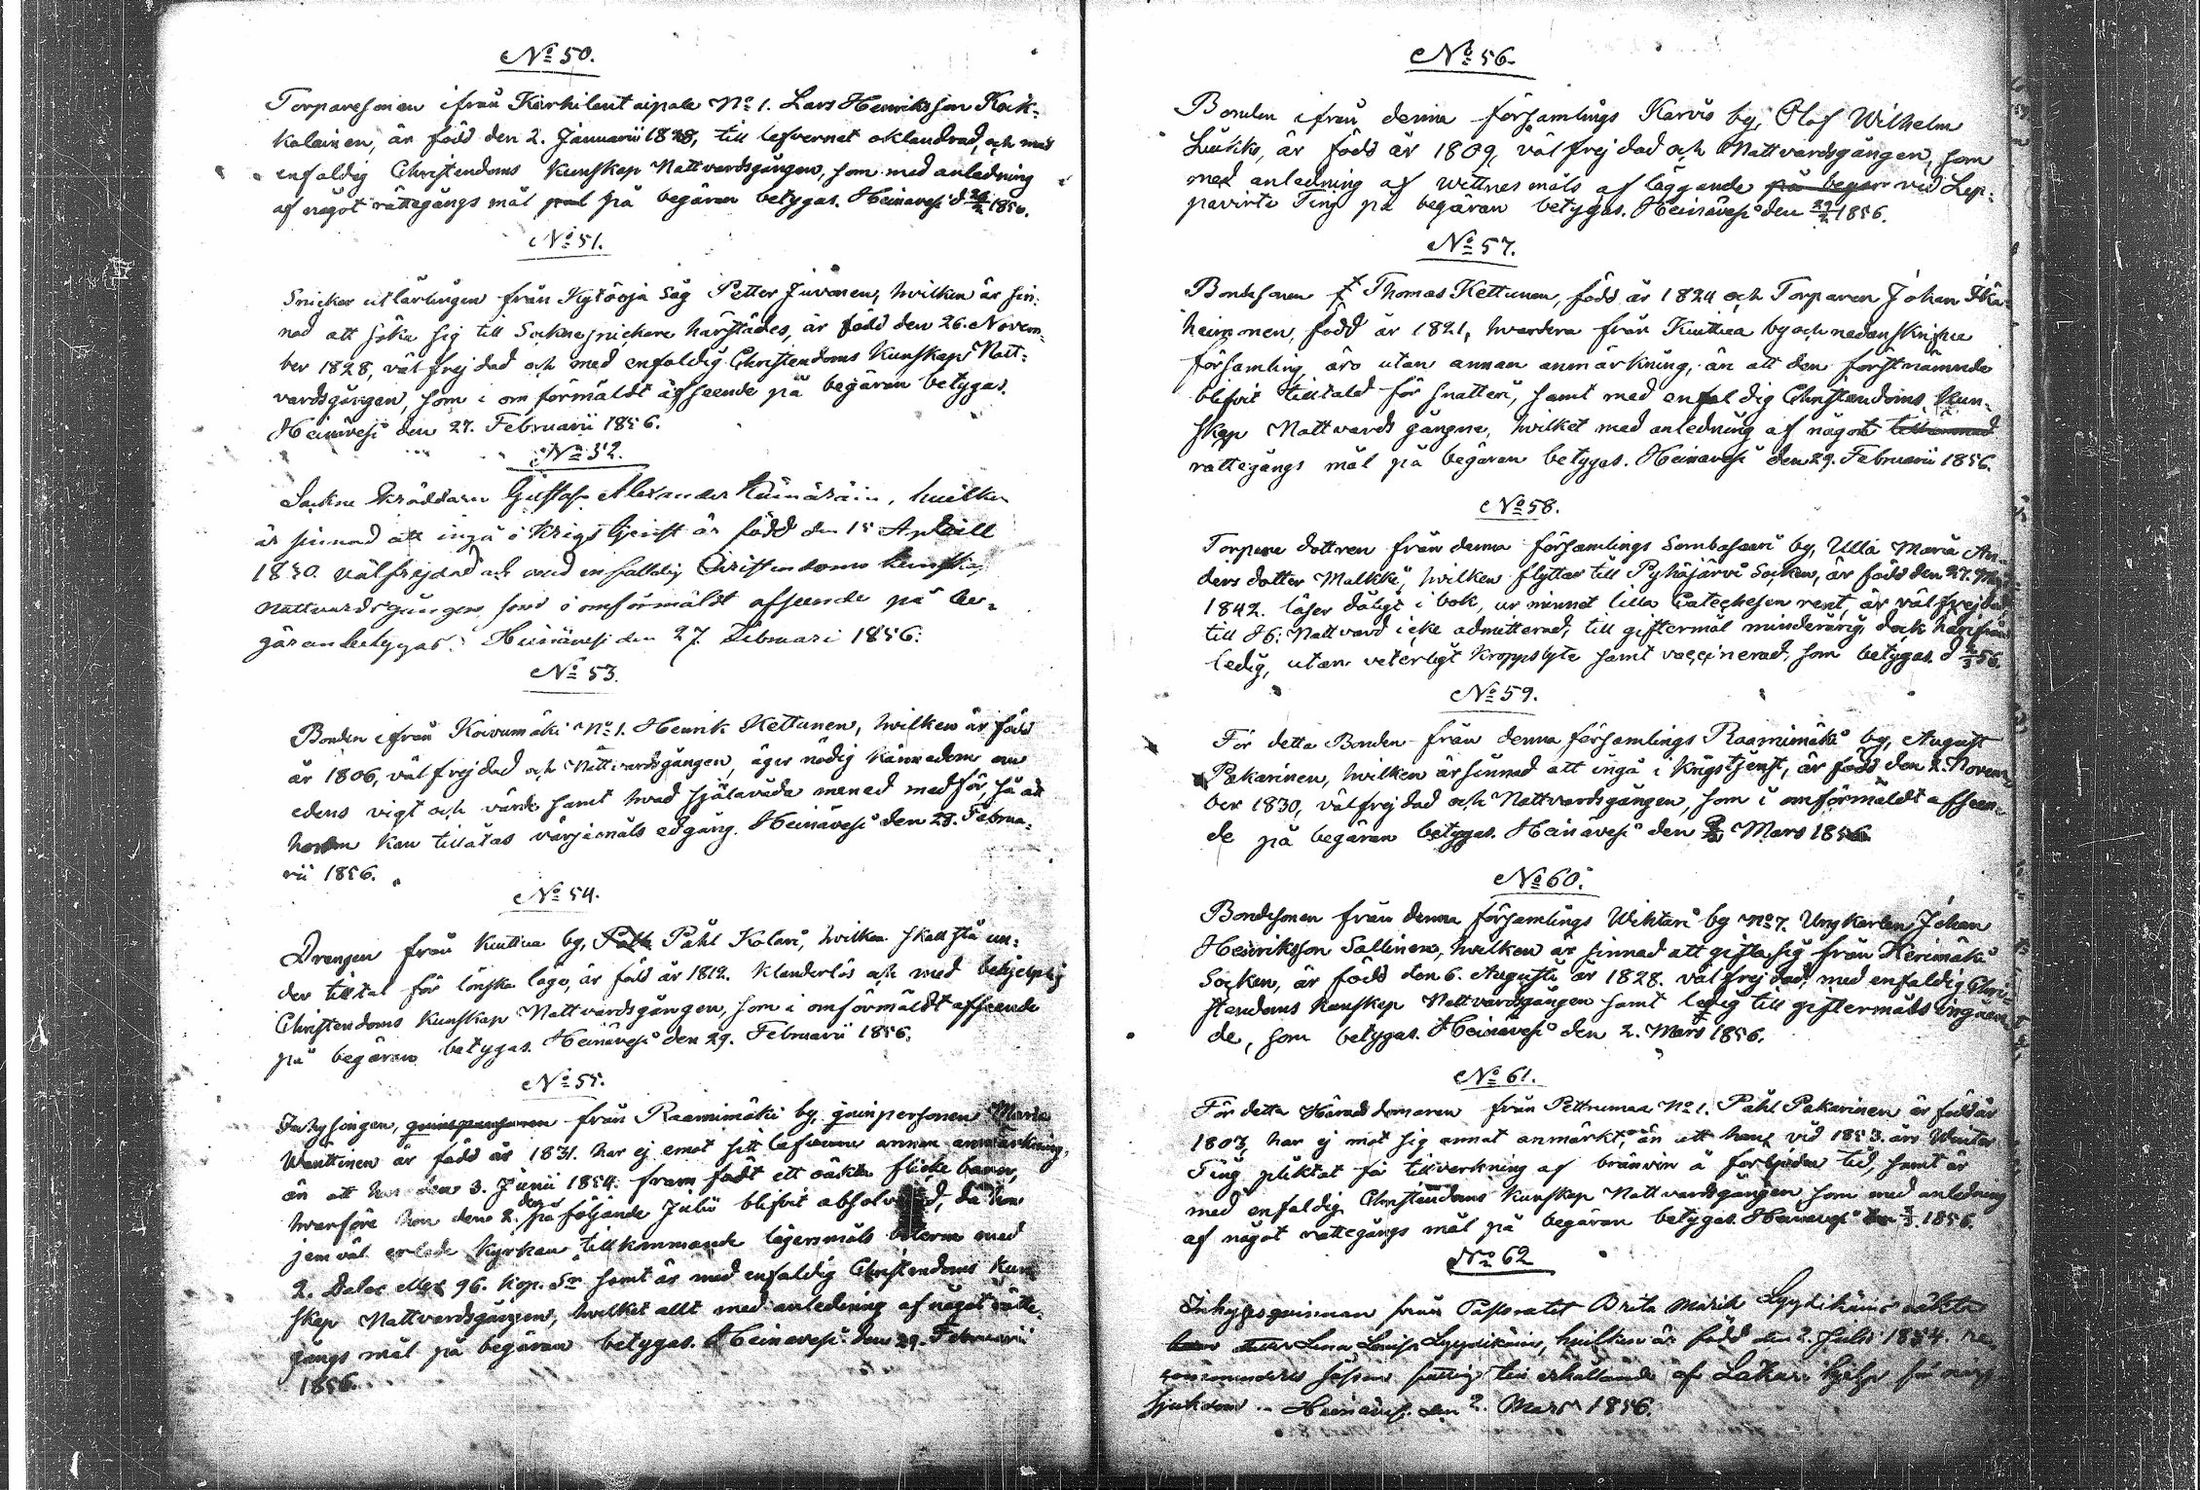 No 50.
Torparesonen ifrån Karhilantaipale No 1. Lars Henriksson Kok-
kalainen, är född den 2. Januarii 1828, till lefvernet oklandrad, och med
enfaldig Christendoms kunskap Nattvardsgången, som med anledning
af något rättegångs mål på begäran betygas. Heinävesi d 26/2 1856.
No 51.
Snickar utlärlingen från Kytöoja Såg Petter Juvonen, hvilken är sin-
nad att söka sig till Sockne snickare härstädes, är född den 26. Novem-
ber 1828, väl frejdad och med enfaldig Christendoms kunskap Natt-
vardsgången, som i omförmäldt afseende på begäran betygas.
Heinävesi den 27. Februarii 1856.
No 52.
Sockne Skräddaren Gustaf Alexander hvilken
är sinnad att ingå i Krigstjenst är född den 15 Aprill
1830. välfrejdad och med enfalldig Christendoms kunskap
Nattvardsgången som i omförmäldt afseende på be-
gäran betygas. Heinävesi den 27 Februari 1856.
No 53.
Bonden ifrån Koivumäki No 1. Henrik Kettunen, hvilken är född
år 1806, väl frejdad och Nattvardsgången, äger nödig kännedom om
edens vigt och värde samt hvad själavåda mened medför, så att
honom kan tillåtas värjemåls edgång. Heinävesi den 28. Februa-
rii 1856.
No 54.
Drengen från Kuttua by, Påhl Kolari, hvilken skall stå un-
der tilltal för lönska läge, är född år 1812. klanderlös och med behjelplig
Christendoms kunskap Nattvardsgången, som i omförmäldt afseende
på begäran betygas. Heinävesi den 29. Februarii 1856.
No 55.
Inhysingen, från Raamimäki by, qvinspersonen Maria
Wänttinen är född år 1831. har ej emot sitt lefverne annan anmärkning,
än att hon den 3. Junii 1854. fram födt ett oäkta flicke barn,
hvarföre hon den 2. derpå följande Julii blifvit absolverad, då hon
jemväl erlade kyrkan tillkommande lägersmåls böterne med
2. Daler 96. kop. Sm samt är med enfaldig Christendoms kun
skap Nattvardsgången, hvilket allt med anledning af något rätte-
gångs mål på begäran betygas. Heinävesi den 29. Februarii
1856.
No 56.
Bonden ifrån denna församlings Karvio by, Olof Wilhelm
Luukko, är född år 1809, väl frejdad och Nattvardsgången, som
med anledning af wittnesmåls afläggande på begär vid Lep-
pävirta Ting på begäran betygas. Heinävesi den 29/2 1856.
No 57.
Bondesonen Thomas Kettunen, född år 1824 och Torparen Johan Ikä-
heimonen, född år 1821, hvardera från Kuttua by och nedanskrifne
församling äro utan annan anmärkning, än att den förstnämnde
blifvit tilltald för snatteri, samt med enfaldig Christendoms kun-
skap Nattvards gångne, hvilket med anledning af något
rättegångs mål på begäran betygas. Heinävesi den 29. Februarii 1856.
No 58.
Torpare dottren från denna församlings Sarvikaari by, Ulla Maria An-
ders dotter Malkki, hvilken flyttar till Pyhäjärvi Socken, är född den 27. Maji
1842. läser dåligt i bok, ur minnet lilla Catechesen rent, är väl frejdad,
till H: Nattvard icke admitterad, till giftermål minderårig dock härifrån
ledig, utan veterligt kroppslyte samt vaccinerad, som betygas. d 2/3 56.
No 59.
För detta Bonden från denna församlings Raamimäki by, August
Pakarinen, hvilken är sinnad att ingå i Krigstjenst, är född den 2. Novem-
ber 1830, välfrejdad och Nattvardsgången, som i omförmäldt afseen-
de på begäran betygas. Heinävesi den 2 Mars 1856.
No 60.
Bondesonen från denna församlings Wihtari by No 7. Ungkarlen Johan
Henriksson Sallinen, hvilken är sinnad att gifta sig från Kerimäki
Socken, är född den 6. Augusti år 1828. väl frejdad, med enfaldig Chri-
stendoms kunskap Nattvardsgången samt ledig till giftermåls ingåen-
de, som betygas. Heinävesi den 2. Mars 1856.
No 61.
För detta Häradsdomaren från Petrumaa No 1. Påhl Pakarinen är född år
1807, har ej mot sig annat anmärkt, än att hans vid 1853. års Winter
Ting pliktat för tillverkning af bränvin å förbjuden tid, samt är
med enfaldig Christendoms kunskap Nattvardsgången som med anledning
af något rättegångs mål på begäran betygas. Heinävesi 2/3 1856.
No 62
Inhyses qvinnan från Pastoratet Brita Maria Lyytikäinen oäkta
Lena Lovisa Lyytikäinen, hvilken är född den 2. Julii 1854.
såsom fattig till erhållande af Läkare hjelp för
sjukdom Heinävesi den 2. Mars 1856.